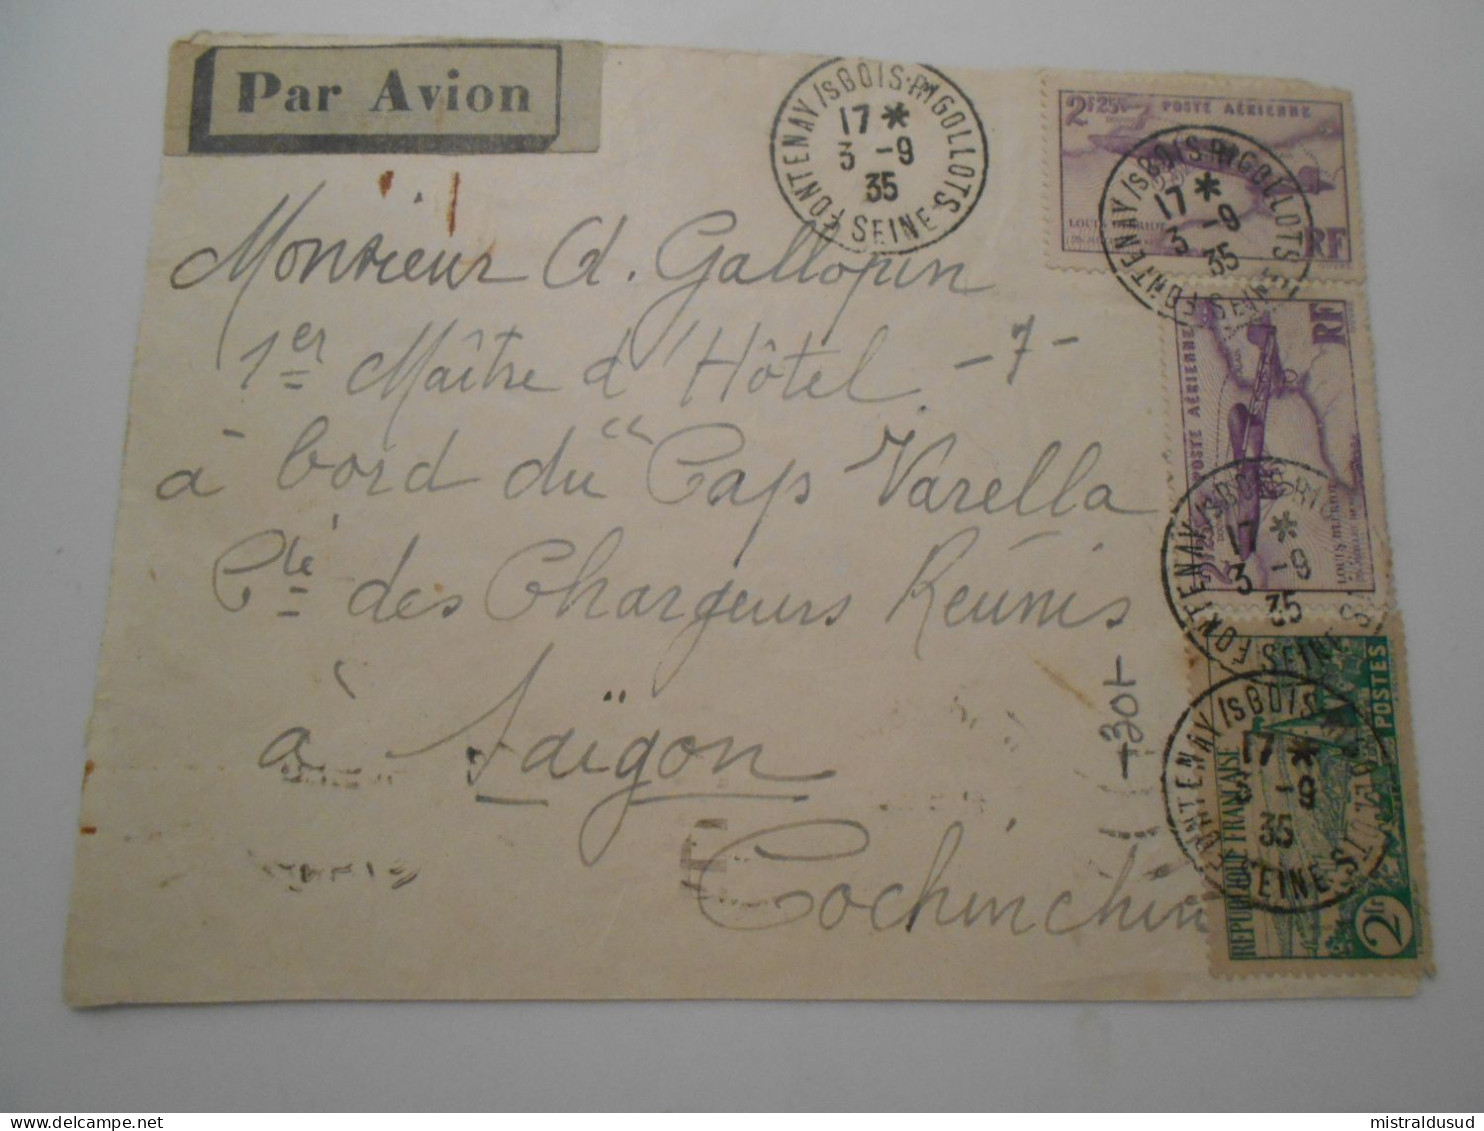 Par Avion
FONTENAY /s BOIS·RIGOLLOTS
17 *
3 - 9
35
SEINE
2F25c POSTE AÉRIENNE
RF
FONTENAY /s BOIS·RIGOLLOTS
17 *
3 - 9
35
SEINE
Monsieur A. Gallopin
1er Maître d'Hôtel -7-
à bord du "Cap Varella
Cie des Chargeurs Réunis
à Saïgon
Cochinchin
-301-
RF
POSTE AÉRIENNE
LOUIS BLÉRIOT
17 *
3 - 9
35
SEINE
FONTENAY /s BOIS
17 *
- 9
35
SEINE
REPUBLIQUE FRANÇAISE
POSTES
2Fr
mistraldusud
delcampe.net